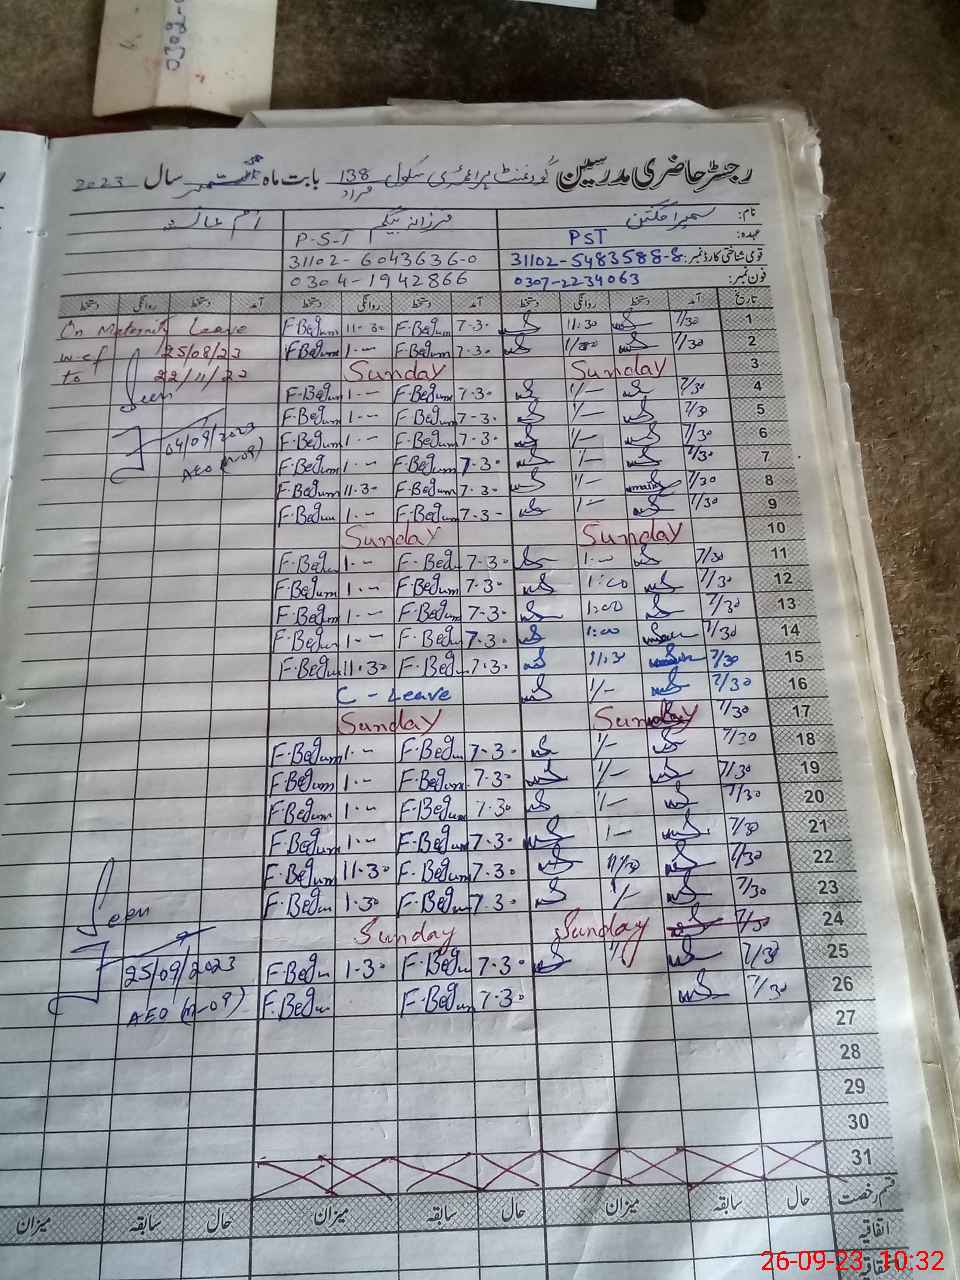 0302-0
رجسٹر حاضری مدرسین گورنمنٹ پرائمری سکول 138 مراد بابت ماہ ستمبر سال 2023
نام: سمیرا فرزانہ بیگم
عہدہ: PST P-S-T
قومی شناختی کارڈ نمبر: 31102-5483588-8 31102-6043636-0
فون نمبر: 0307-2234063 0304-1942866
تاریخ آمد دستخط روانگی دستخط آمد دستخط روانگی دستخط آمد دستخط روانگی دستخط
1 7/30 11:30 7-3- F-Begum 11-30 F-Begum On Maternity Leave
2 7/30 7-3- F-Begum 1-- F-Begum w-e-f 25/08/23
3 Sunday Sunday to 22/11/23
4 7/30 1/- 7-30- F-Begum 1-- F-Begum Seen
5 7/30 1/- 7-30- F-Begum 1-- F-Begum
6 7/30 1/- 7-3- F-Begum 1-- F-Begum 04/09/2023
7 7/30 1/- 7-3- F-Begum 1-- F-Begum AEO (m-09)
8 7/30 1/- 7-3- F-Begum 11-30 F-Begum
9 7/30 1-- 7-3- F-Begum 1-- F-Begum
10 Sunday Sunday
11 7/30 1-- 7-30 F-Begum 1-- F-Begum
12 7/30 1:00 7-30 F-Begum 1-- F-Begum
13 7/30 1:00 7-30 F-Begum 1-- F-Begum
14 7/30 1:00 7-30 F-Begum 1-- F-Begum
15 7/30 11:30 7-30 F-Begum 11-30 F-Begum
16 7/30 1/- C-Leave
17 7/30 Sunday Sunday
18 7/30 1/- 7-30 F-Begum 1-- F-Begum
19 7/30 1/- 7-30 F-Begum 1-- F-Begum
20 7/30 1/- 7-30 F-Begum 1-- F-Begum
21 7/30 1- 7-30 F-Begum 1-- F-Begum
22 7/30 11/30 7-30 F-Begum 11-30 F-Begum
23 7/30 1/- 7-30 F-Begum 1-30 F-Begum Seen
24 7/30 Sunday Sunday
25 7/30 7-30 F-Begum 1-30 F-Begum 25/09/2023
26 7/30 7-30 F-Begum F-Begum AEO (m-09)
27
28
29
30
31
قسم رخصت حال سابقہ میزان حال سابقہ میزان حال سابقہ میزان
اتفاقیہ
26-09-23, 10:32